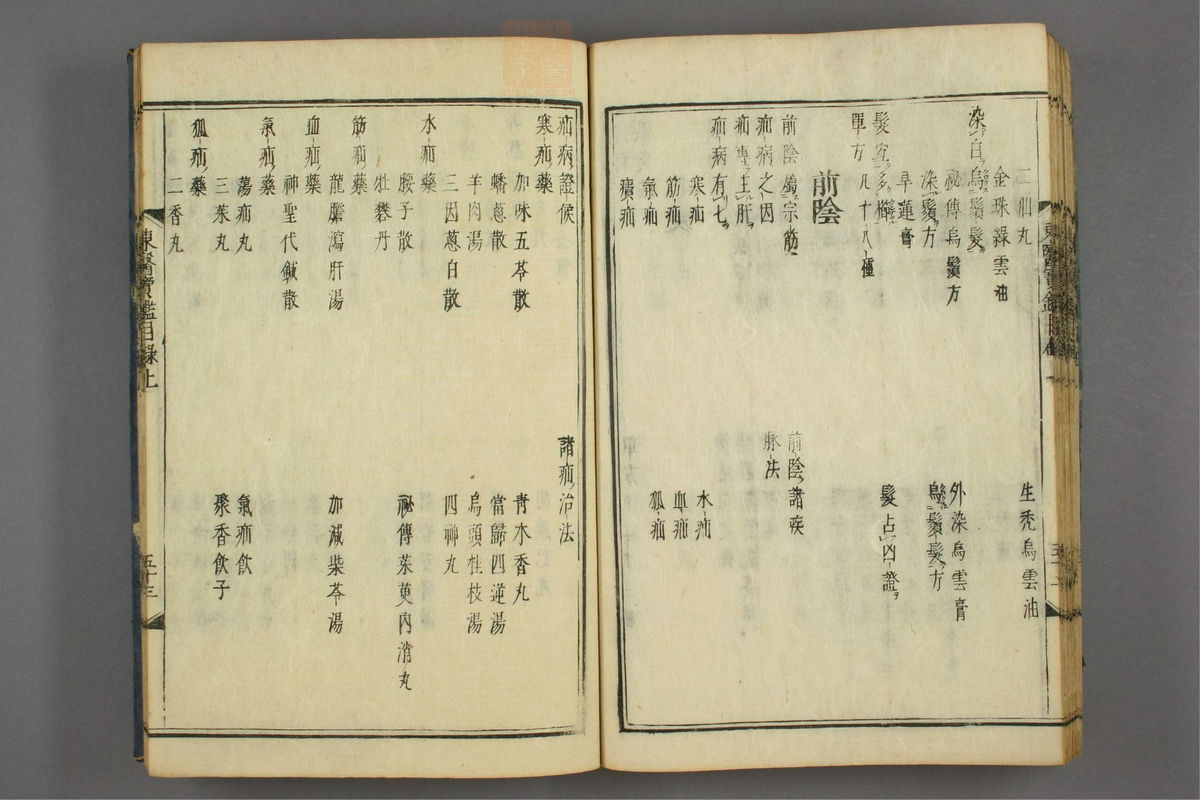 二仙丸
生禿烏雲油
金珠綠雲油
染白烏鬚髮
祕傳烏鬚方
外染烏雲膏
染鬚方
烏鬚髮方
旱蓮膏
髮宜多櫛
髮占凶證
單方凡十八種
前陰
前陰屬宗筋
前陰諸疾
疝病之因
脉法
疝專主肝
疝病有七
寒疝
水疝
筋疝
血疝
氣疝
狐疝
㿗疝
疝病證候
諸疝治法
寒疝藥
加味五苓散
靑木香丸
蟠葱散
當歸四逆湯
羊肉湯
烏頭桂枝湯
三因葱白散
四神丸
水疝藥
腰子散
祕傳茱萸內消丸
牡礬丹
筋疝藥
龍膽瀉肝湯
加減柴苓湯
血疝藥
神聖代鍼散
氣疝藥
蕩疝丸
氣疝飮
三茱丸
聚香飮子
狐疝藥
二香丸
東醫寶鑑目錄上
五十三